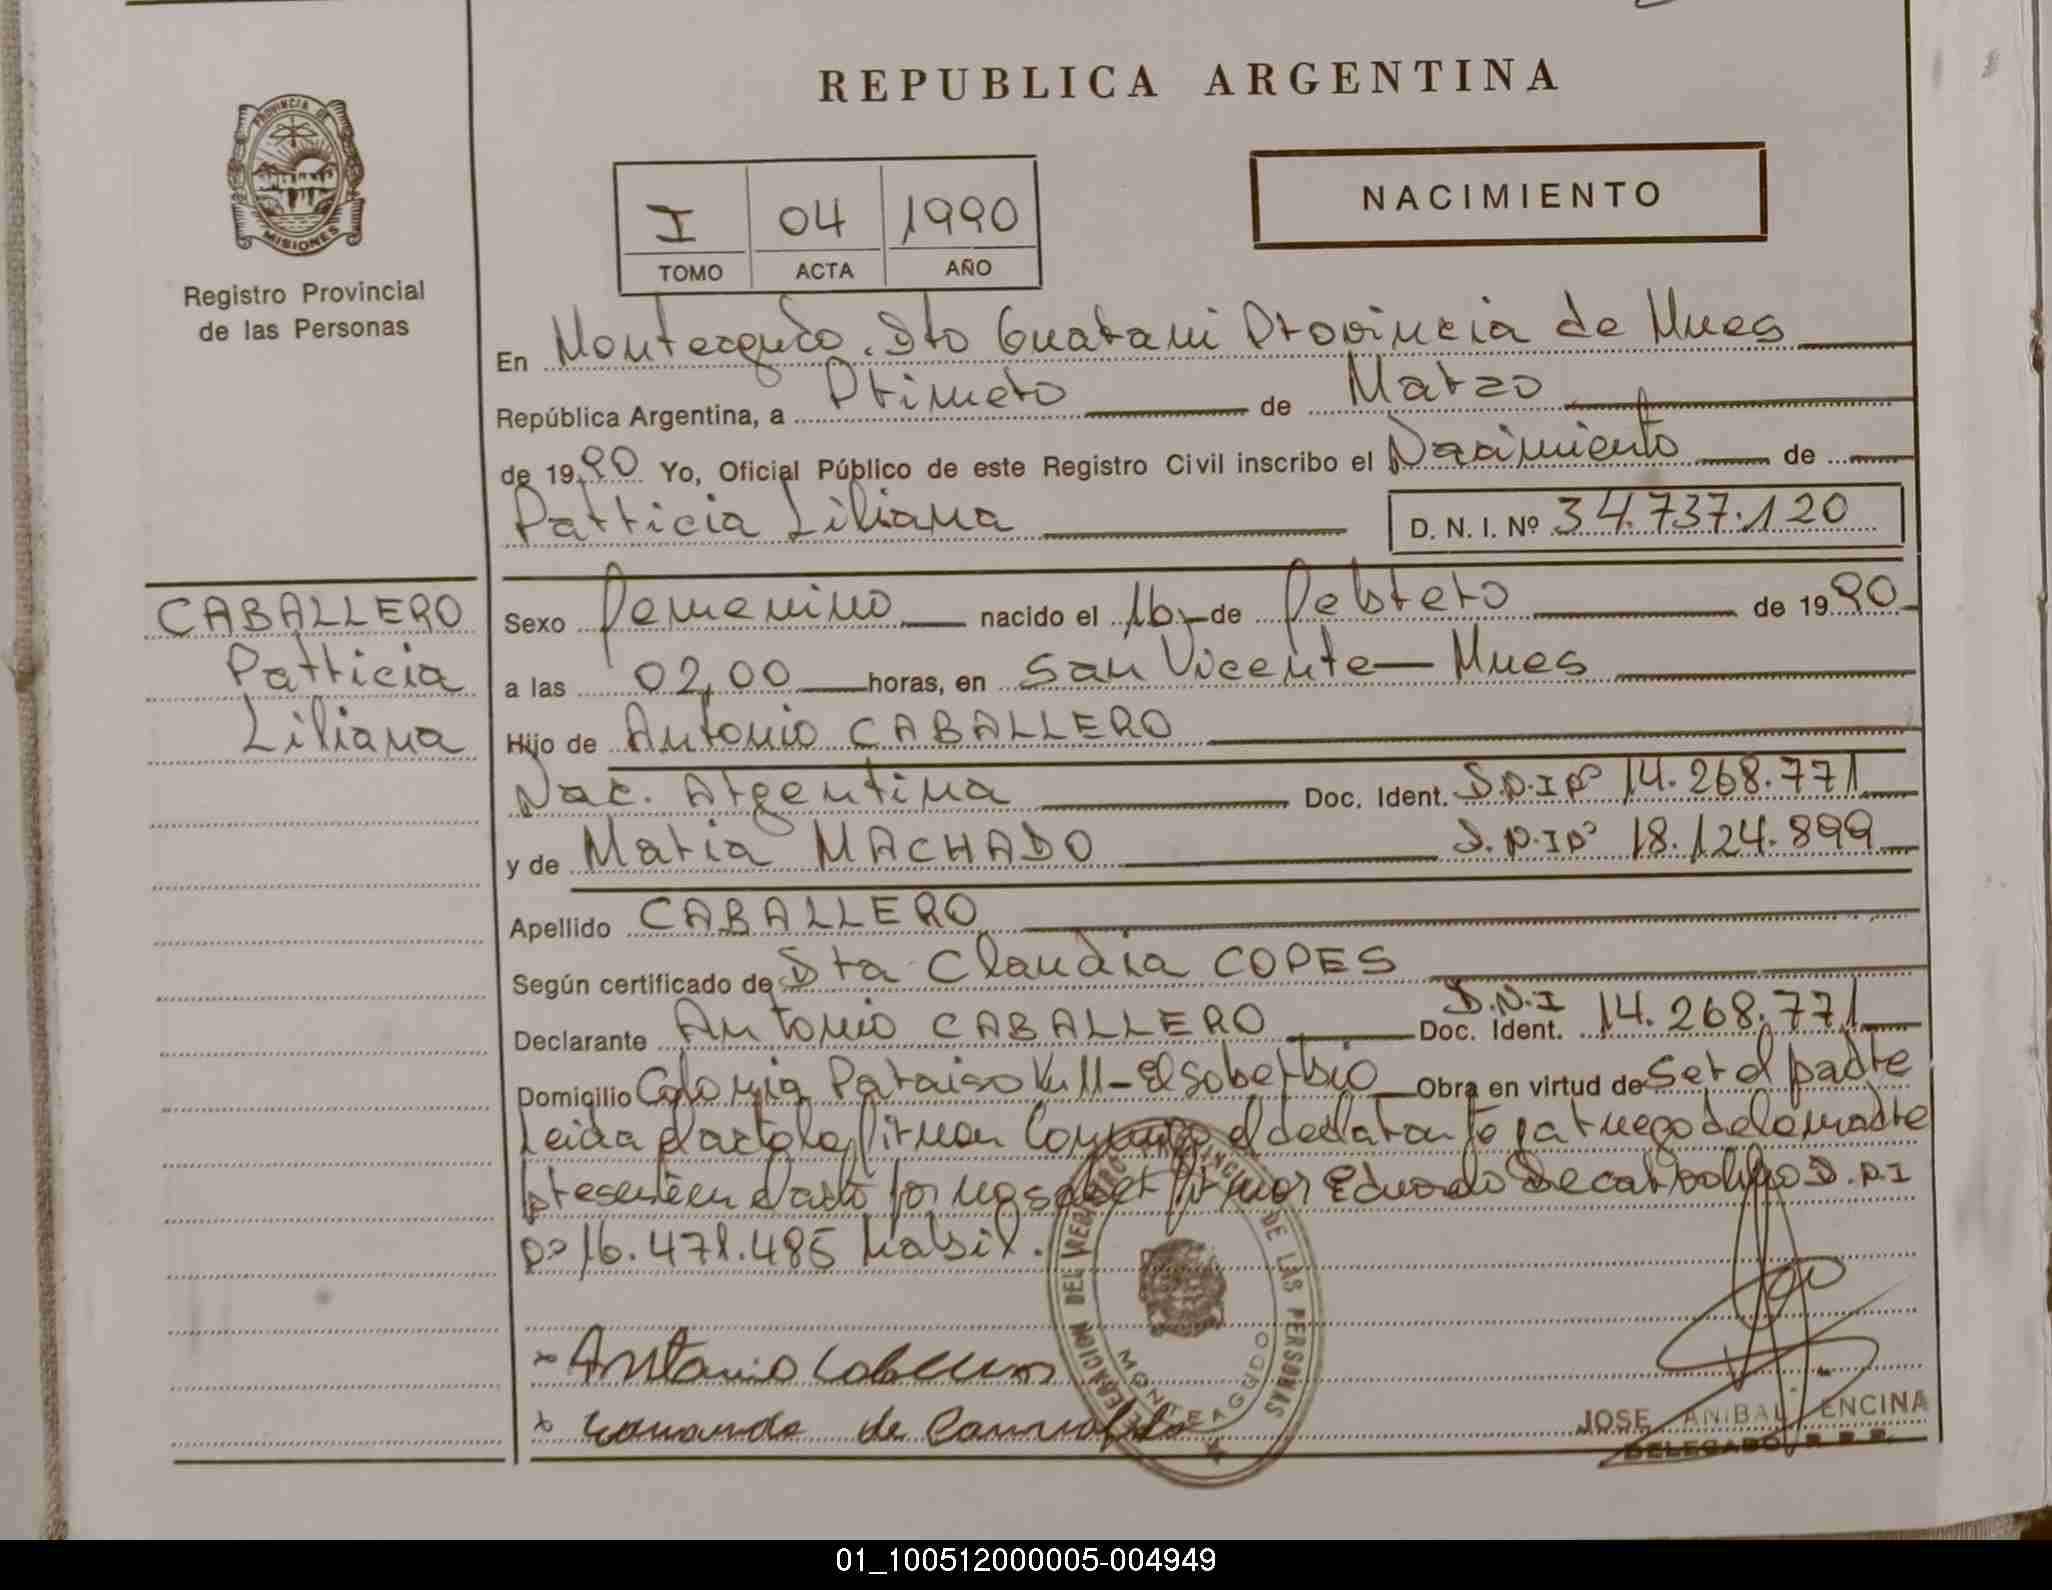 REPUBLICA ARGENTINA
PROVINCIA DE
MISIONES
Registro Provincial
de las Personas
I 04 1990
TOMO ACTA AÑO
NACIMIENTO
En Monteagudo. Dto Guarani Provincia de Mnes
República Argentina, a Primero de Marzo
de 1990 Yo, Oficial Público de este Registro Civil inscribo el Nacimiento de
Patricia Liliana D. N. I. Nº 34.737.120
CABALLERO
Patricia
Liliana
Sexo Femenino nacido el 16 de Febrero de 1990
a las 02,00 horas, en San Vicente - Mnes
Hijo de Antonio CABALLERO
Nac. Argentina Doc. Ident. D.N.I Nº 14.268.771
y de Maria MACHADO D.N.I Nº 18.124.899
Apellido CABALLERO
Según certificado de Dra Claudia COPES
Declarante Antonio CABALLERO Doc. Ident. D.N.I 14.268.771
Domicilio Colonia Paraiso Km 11 - El Soberbio Obra en virtud de Ser el padre
Leida el acta la firman Conmigo el declarante y a ruego de la madre
presente en el acto por no saber firmar Eduardo De D.N.I
Nº 16.471.485 habil.
DELEGACION DEL REGISTRO PROVINCIAL DE LAS PERSONAS
MONTEAGUDO
x Antonio Caballero
x de
JOSE ANIBAL ENCINA
DELEGADO R. P. P.
01_100512000005-004949